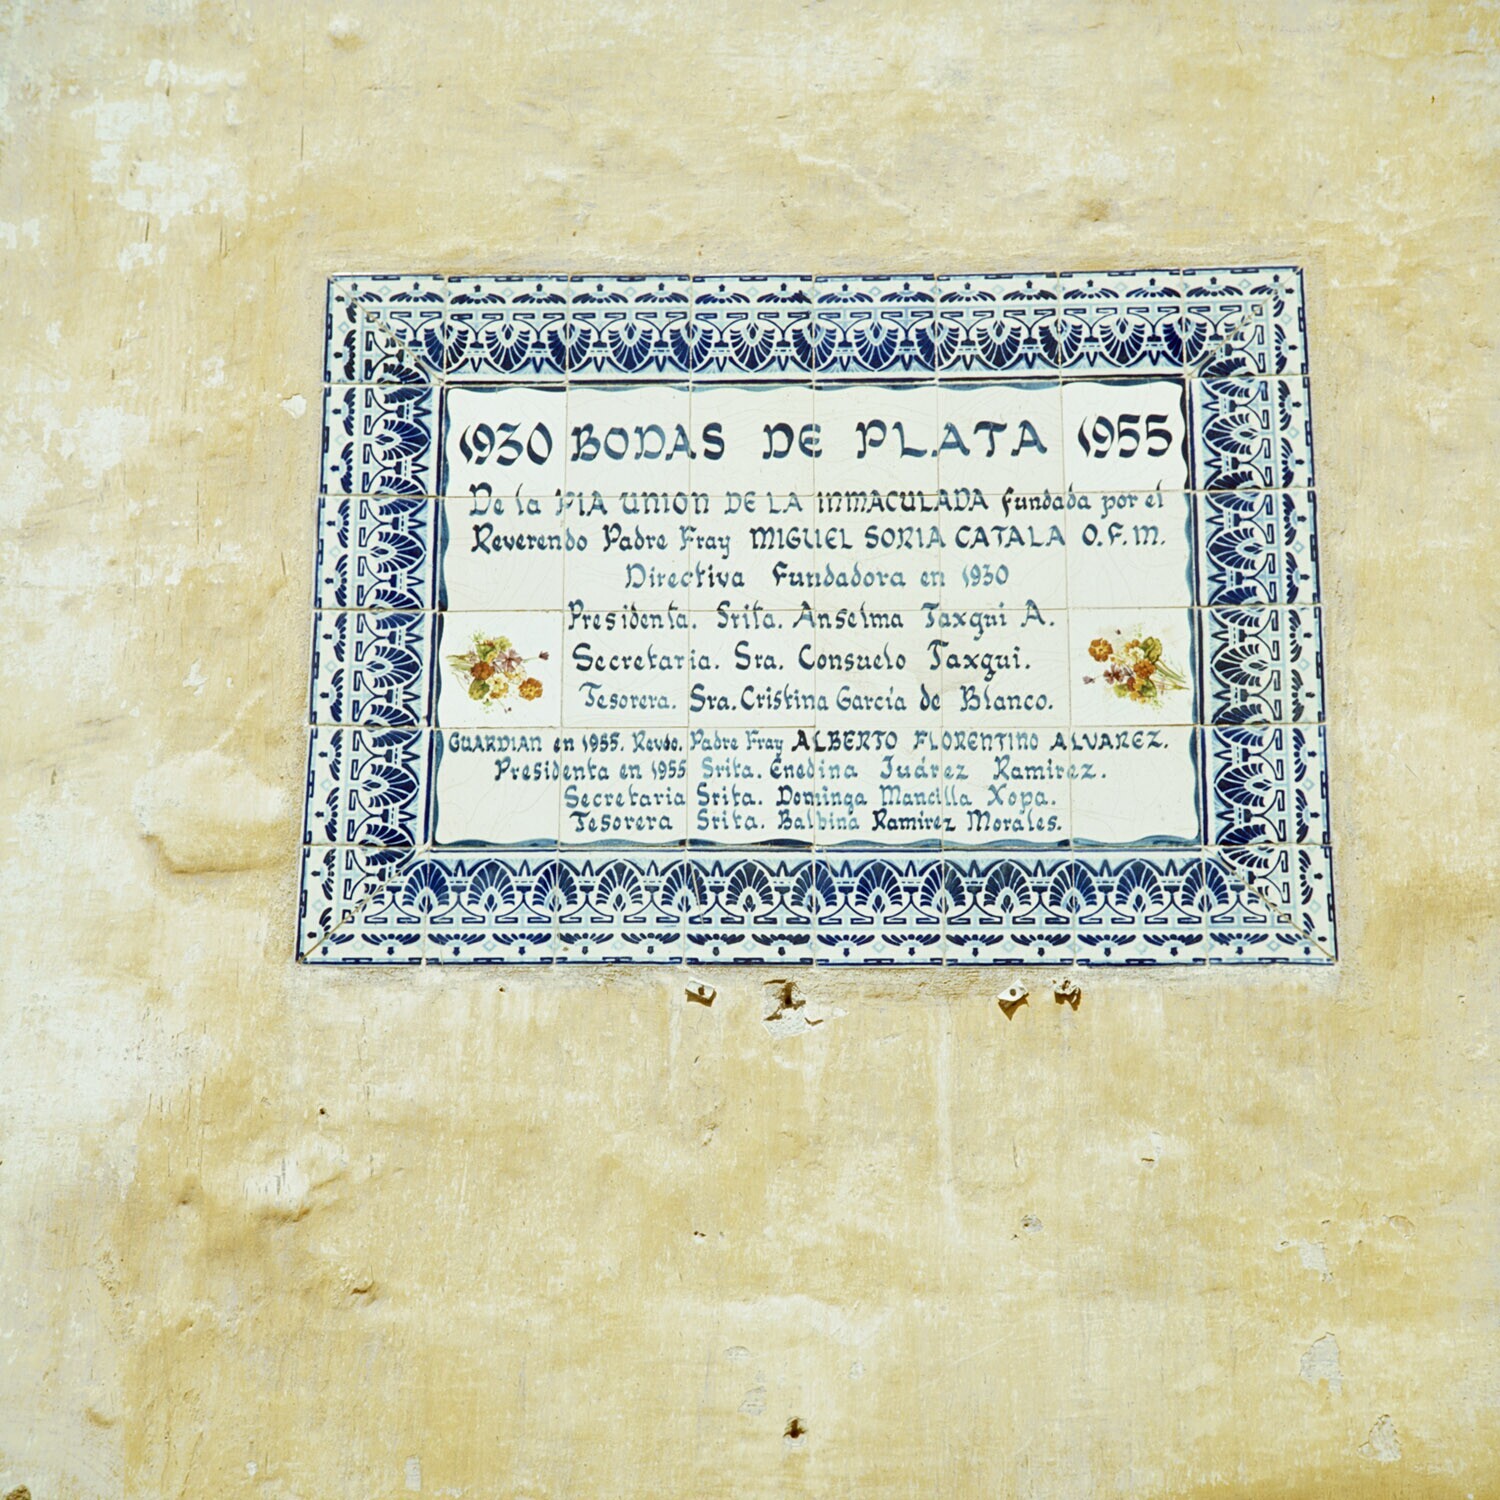 1930 BODAS DE PLATA 1955
De la PIA UNION DE LA INMACULADA fundada por el
Reverendo Padre Fray MIGUEL SORIA CATALA O.F.M.
Directiva Fundadora en 1930
Presidenta. Srita. Anselma Taxqui A.
Secretaria. Sra. Consuelo Taxqui.
Tesorera. Sra. Cristina García de Blanco.
GUARDIAN en 1955. Revdo. Padre Fray ALBERTO FLORENTINO ALVAREZ.
Presidenta en 1955 Srita. Enedina Juárez Ramirez.
Secretaria Srita. Dominga Mancilla Xopa.
Tesorera Srita. Balbina Ramirez Morales.